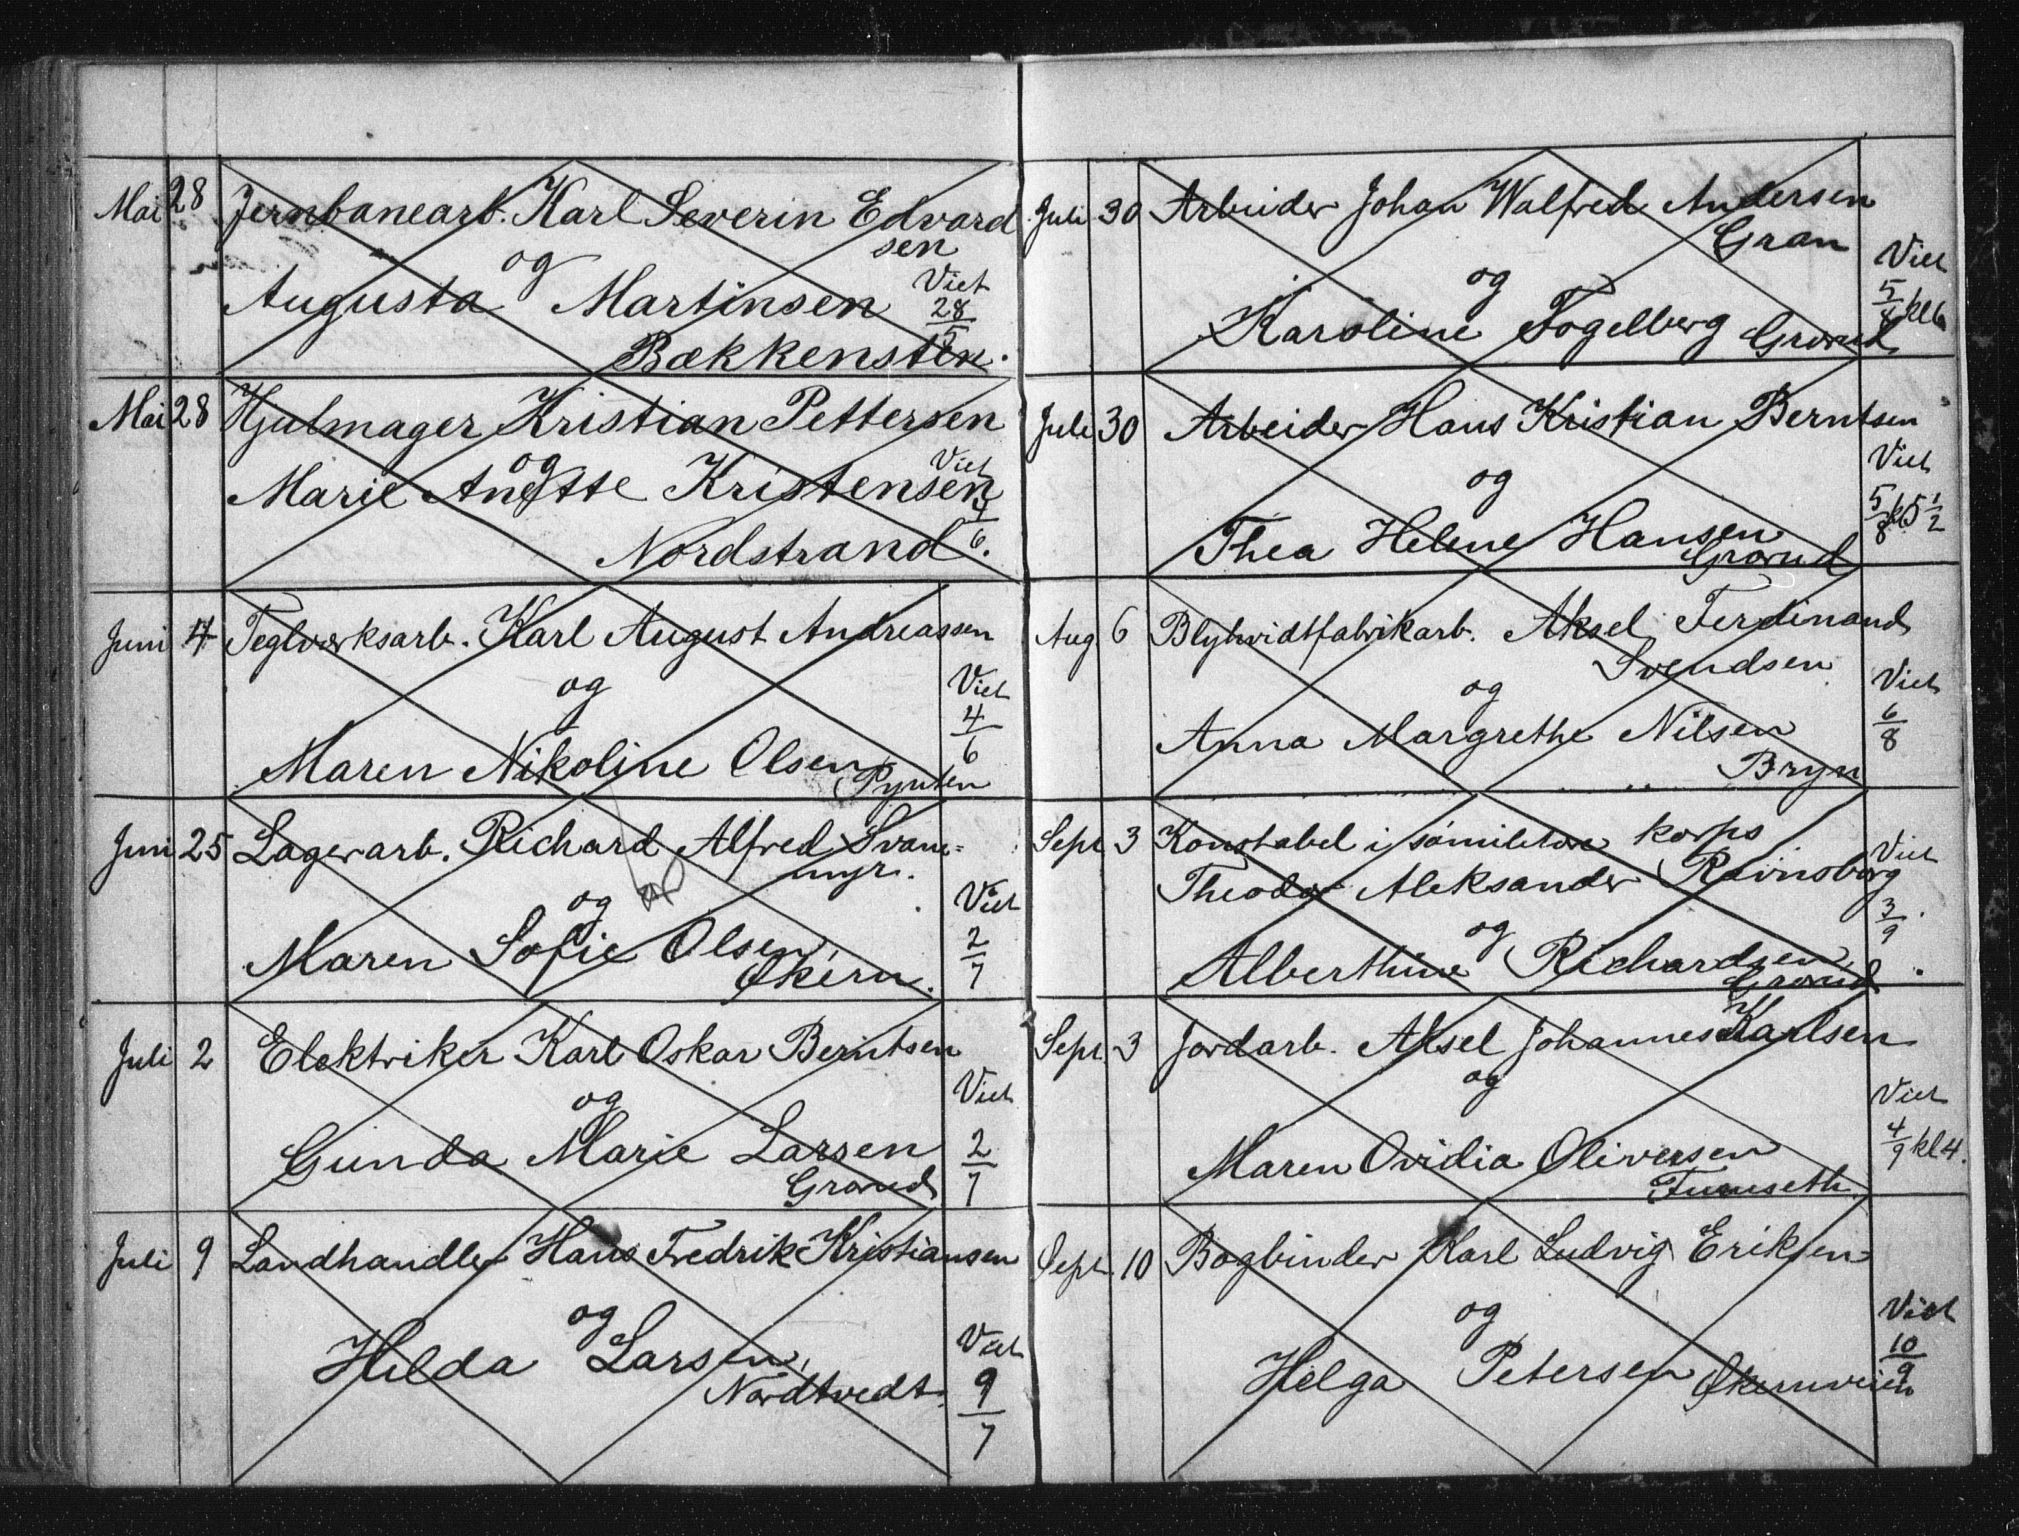 Mai 28 Jernbanearb. Karl Severin Edvard
sen
og
Viet
Augusta Martinsen 28/5
Bækkensten.
Mai 28 Hjulmager Kristian Pettersen
og
Viet
Marie Anette Kristensen
4/6.
Nordstrand
Juni 4 Teglværksarb. Karl August Andreassen
og
Viet
4/6
Maren Nikoline Olsen
Pynten
Juni 25 Lagerarb. Richard Alfred Svane-
myr.
og
Viet
Maren Sofie Olsen 2/7
Økern.
Juli 2 Elektriker Karl Oskar Berntsen
og
Viet
Gunda Marie Larsen 2/7
Grorud
Juli 9 Landhandler Hans Fredrik Kristiansen
og
Viet
Hilda Larsen,
Nordtvedt. 9/7
Juli 30 Arbeider Johan Walfred Andersen
Gran
Viet
og
5/8 kl 6
Karoline Fogelberg Grorud
Juli 30 Arbeider Hans Kristian Berntsen
Viet
og
5/8 kl 5 1/2
Thea Helene Hansen
Grorud
Aug. 6 Blyhvidtfabrikarb. Aksel Ferdinand
Svendsen
Viet
og
6/8
Anna Margrethe Nilsen
Bryn
Sept 3 Konstabel i korps
Viet
Theodor Aleksander Ravnsborg
3/9.
og
Alberthine Richardsen
Grorud
Sept. 3 Jordarb. Aksel Johannes Karlsen
og
Viet
4/9 kl 4.
Maren Ovidia Oliversen
Furuseth.
Sept. 10 Bogbinder Karl Ludvig Eriksen
og
Viet
10/9
Helga Petersen Økernveien